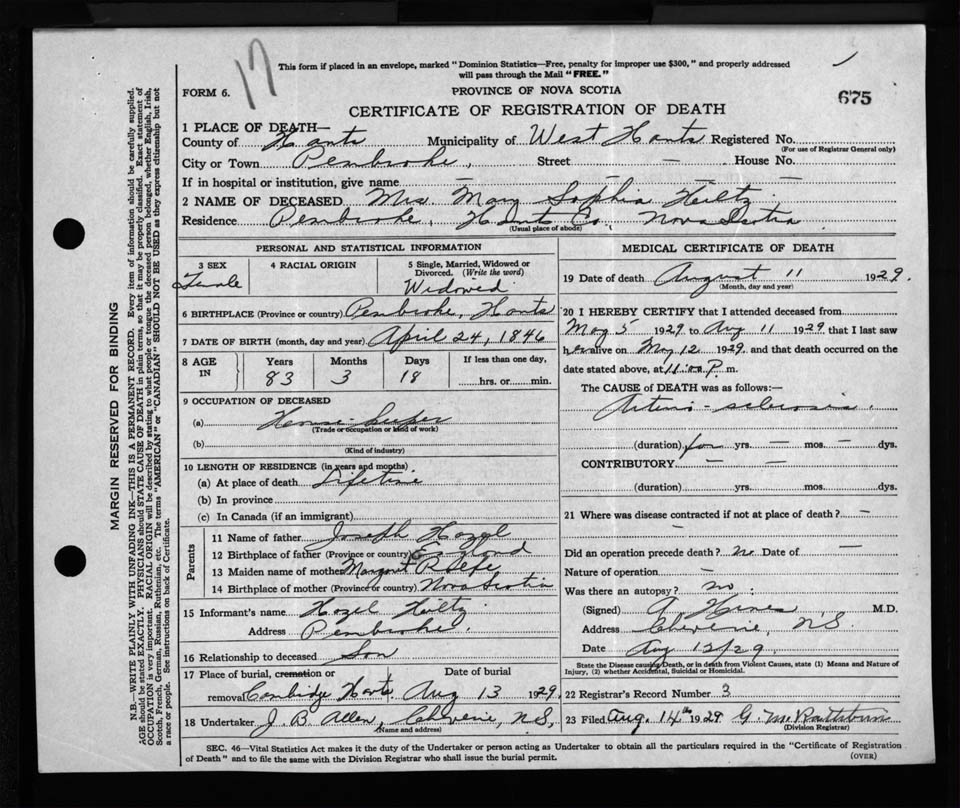 17
This form if placed in an envelope, marked "Dominion Statistics—Free, penalty for improper use $300," and properly addressed
will pass through the Mail "FREE."
FORM 6.
PROVINCE OF NOVA SCOTIA
675
CERTIFICATE OF REGISTRATION OF DEATH
1 PLACE OF DEATH—
County of Hants Municipality of West Hants Registered No.
(For use of Registrar General only)
City or Town Pembroke, Street — House No.
If in hospital or institution, give name — — —
2 NAME OF DECEASED Mrs Mary Sophia Hiltz
Residence Pembroke, Hants Co, Nova Scotia
(Usual place of abode)
PERSONAL AND STATISTICAL INFORMATION
3 SEX
Female
4 RACIAL ORIGIN
5 Single, Married, Widowed or
Divorced. (Write the word)
Widowed
6 BIRTHPLACE (Province or country) Pembroke, Hants
7 DATE OF BIRTH (month, day and year) April 24, 1846
8 AGE
IN
Years Months Days If less than one day,
83 3 18 hrs. or min.
9 OCCUPATION OF DECEASED
(a) House-keeper
(Trade or occupation or kind of work)
(b)
(Kind of industry)
10 LENGTH OF RESIDENCE (in years and months)
(a) At place of death Lifetime
(b) In province
(c) In Canada (if an immigrant)
Parents
11 Name of father Joseph Hazel
12 Birthplace of father (Province or country) England
13 Maiden name of mother Margaret
14 Birthplace of mother (Province or country) Nova Scotia
15 Informant's name Hazel Hiltz
Address Pembroke.
16 Relationship to deceased Son
17 Place of burial, cremation or Date of burial
removal Cambridge Hants. Aug 13 1929
18 Undertaker J B Allen, Cheverie, N.S,
(Name and address)
MEDICAL CERTIFICATE OF DEATH
19 Date of death August 11 1929.
(Month, day and year)
20 I HEREBY CERTIFY that I attended deceased from
May 5 1929 to Aug 11 1929 that I last saw
her alive on May 12 1929. and that death occurred on the
date stated above, at 11:00 P. m.
The CAUSE OF DEATH was as follows:—
Arterio-sclerosis.
(duration) yrs. — mos. — dys.
CONTRIBUTORY — —
(duration) yrs. mos. dys.
21 Where was disease contracted if not at place of death? —
—
Did an operation precede death? no Date of —
Nature of operation —
Was there an autopsy? no.
(Signed) A Hines, M.D.
Address Cheverie, NS.
Date Aug 12/29.
State the Disease causing Death, or in death from Violent Causes, state (1) Means and Nature of
Injury, (2) whether Accidental, Suicidal or Homicidal.
22 Registrar's Record Number 3
23 Filed Aug. 14th 1929 G. M. Rathburn
(Division Registrar)
SEC. 46—Vital Statistics Act makes it the duty of the Undertaker or person acting as Undertaker to obtain all the particulars required in the "Certificate of Registration
of Death" and to file the same with the Division Registrar who shall issue the burial permit.
(OVER)
MARGIN RESERVED FOR BINDING
N.B.—WRITE PLAINLY, WITH UNFADING INK—THIS IS A PERMANENT RECORD. Every item of information should be carefully supplied.
AGE should be stated EXACTLY. PHYSICIANS should STATE CAUSE OF DEATH in plain terms, so that it may be properly classified. Exact statement of
OCCUPATION is very important. RACIAL ORIGIN will be described by stating to what people or tongue the deceased person belonged, whether English, Irish,
Scotch, French, German, Russian, Ruthenian, etc. The terms "AMERICAN" or "CANADIAN" SHOULD NOT BE USED as they express citizenship but not
a race or people. See instructions on back of Certificate.